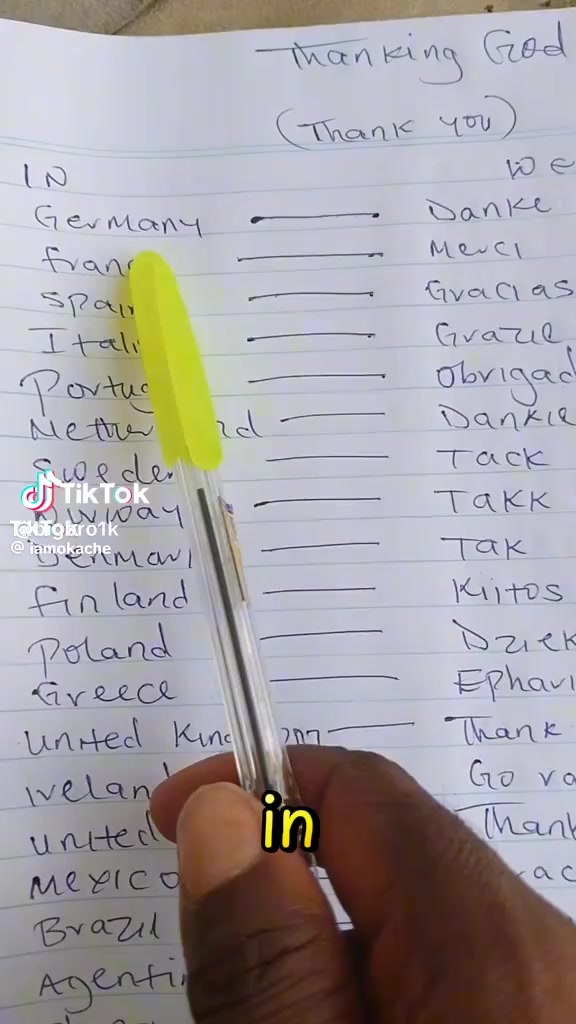 Thanking God
(Thank you)
IN WE
Germany Danke
France Merci
Spain Gracias
Itali Grazie
Portug Obrigad
Netherland Dankie
Sweden Tack
Norway Takk
Denmark Tak
Finland Kiitos
Poland Dziek
Greece Ephavi
United Kingdom Thank
Ireland Go ra
United Thank
Mexico rac
Brazil
Agenti
TikTok
@ iamokache
in